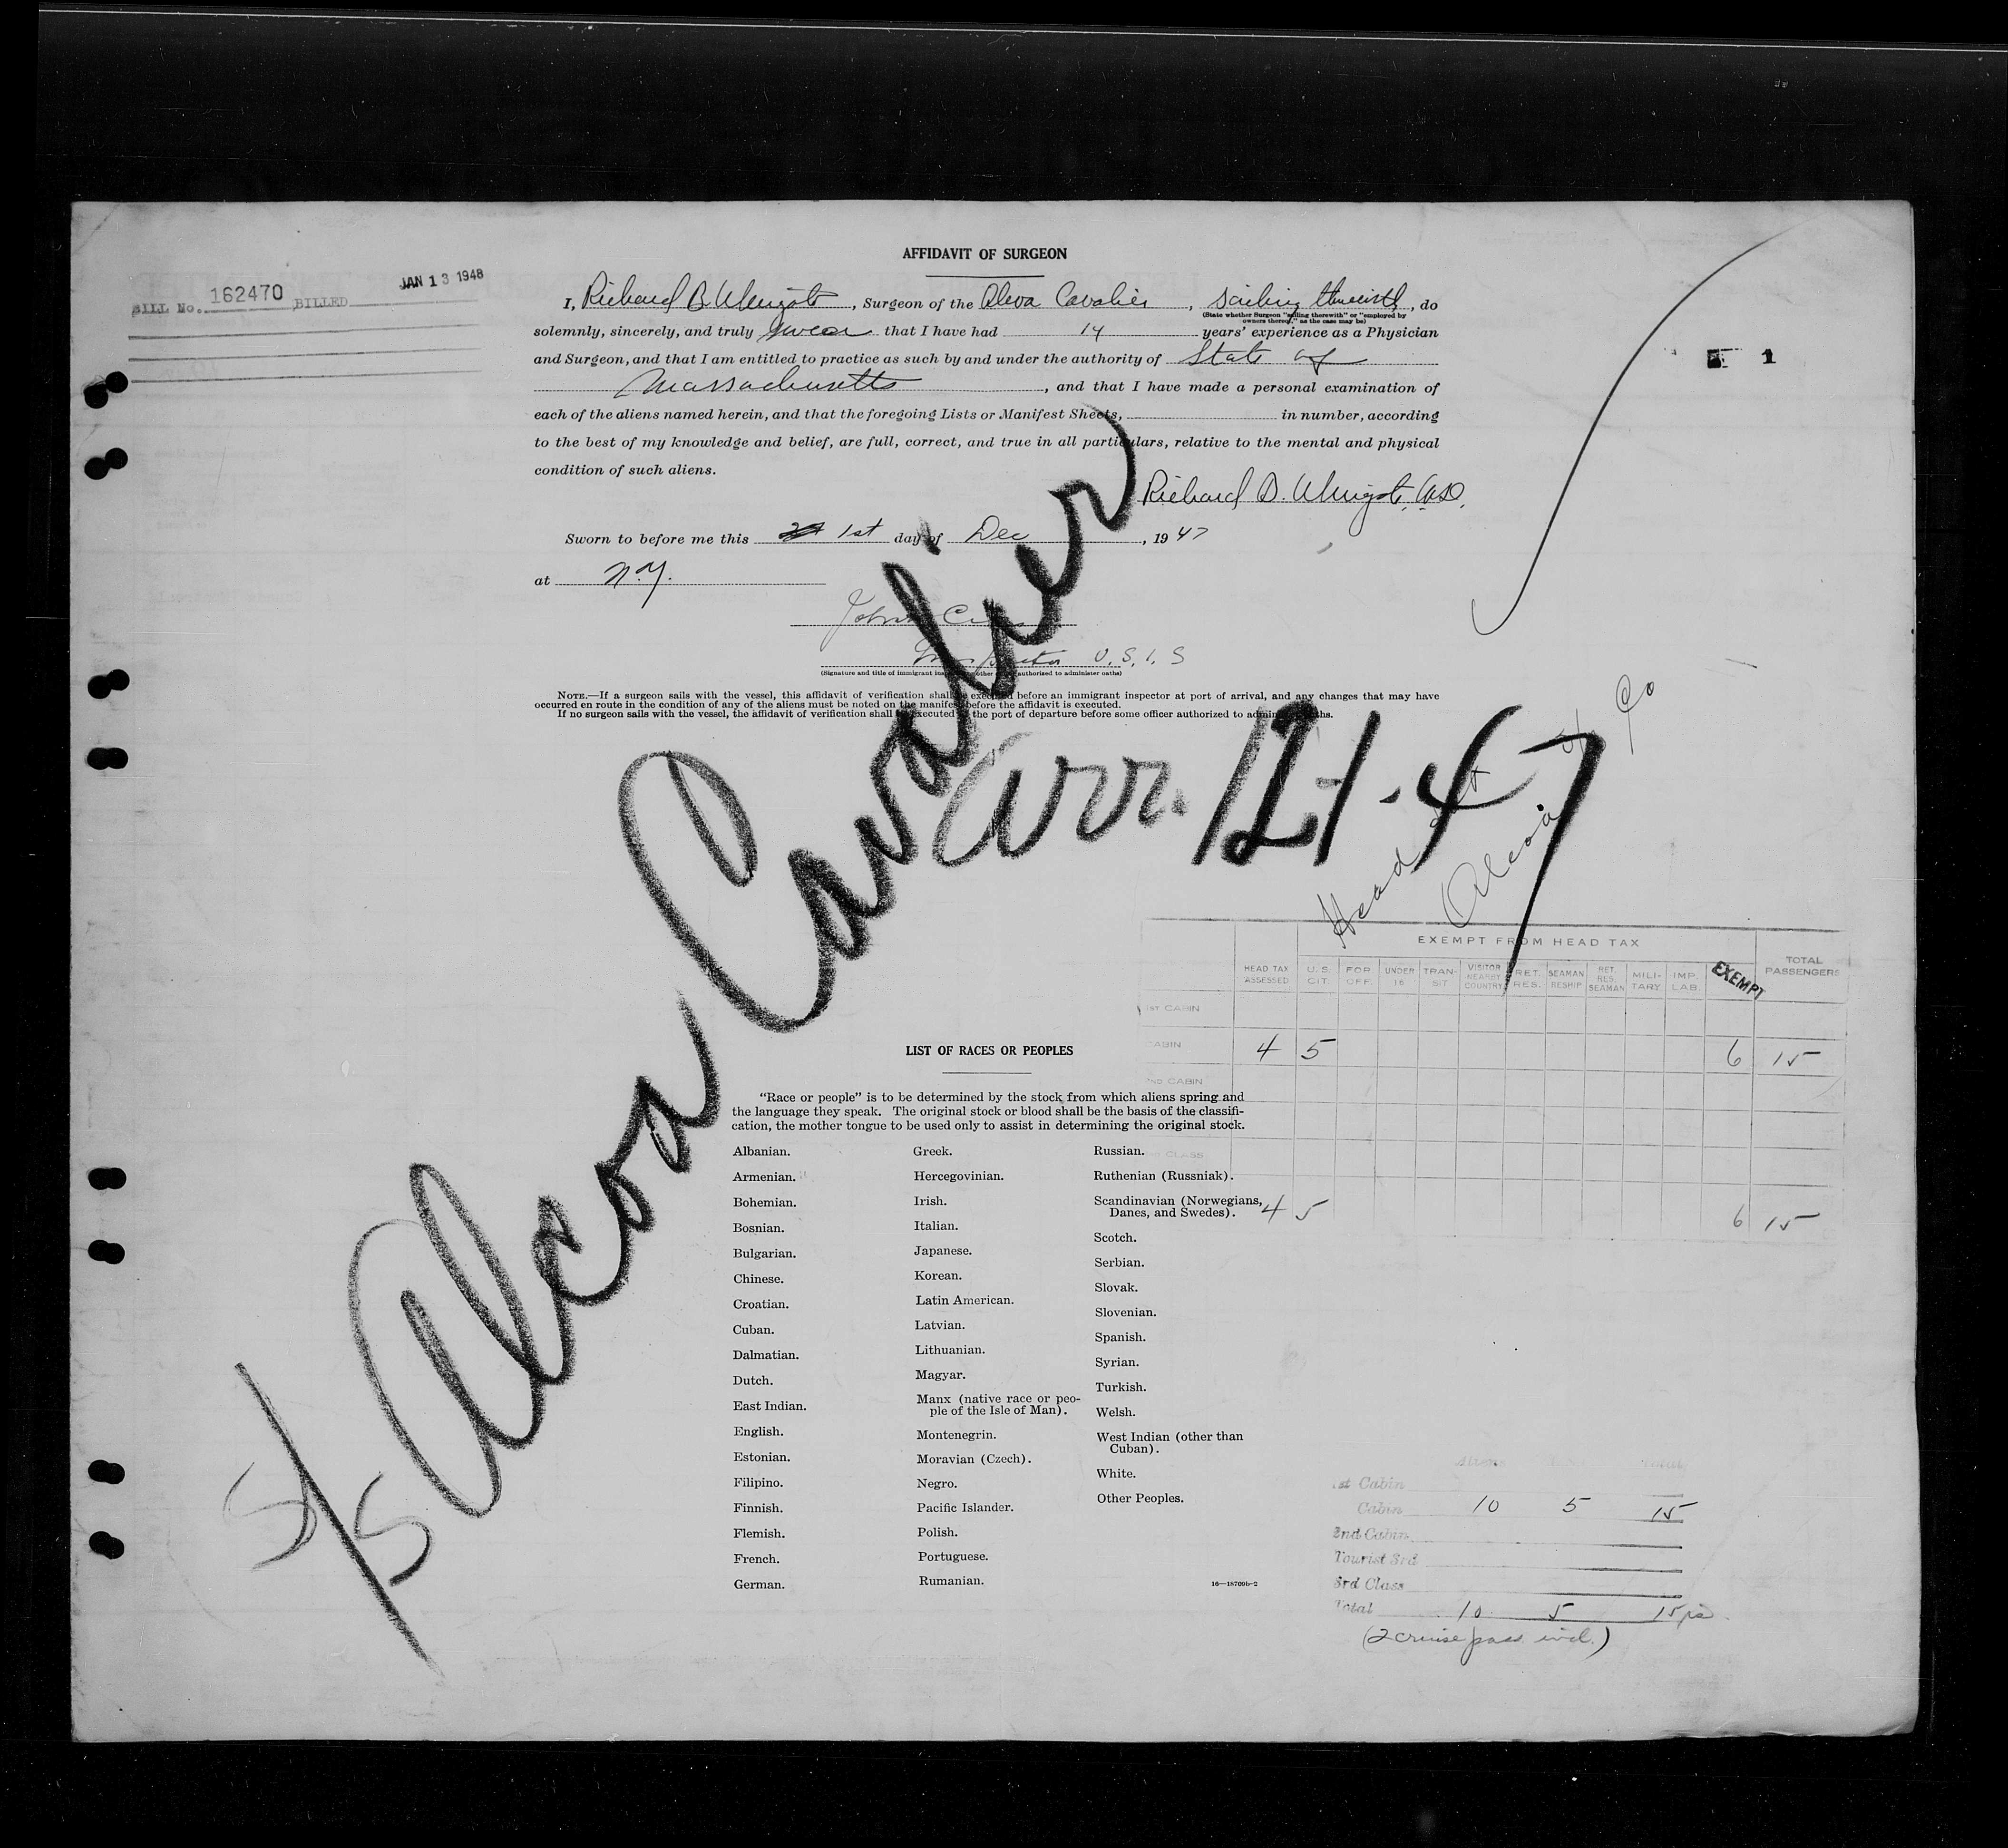 AFFIDAVIT OF SURGEON
BILL No. 162470 BILLED JAN 13 1948
I, Richard B. , Surgeon of the Alcoa Cavalier, sailing therewith, do
(State whether Surgeon "sailing therewith" or "employed by
owners thereof," as the case may be)
solemnly, sincerely, and truly swear that I have had 14 years' experience as a Physician
and Surgeon, and that I am entitled to practice as such by and under the authority of State of
Massachusetts, and that I have made a personal examination of
1
each of the aliens named herein, and that the foregoing Lists or Manifest Sheets, in number, according
to the best of my knowledge and belief, are full, correct, and true in all particulars, relative to the mental and physical
condition of such aliens.
Richard B.
Sworn to before me this 1st day of Dec, 1947
at N.Y.
John
Inspector U.S.I.S
(Signature and title of immigrant inspector or other officer authorized to administer oaths)
NOTE.—If a surgeon sails with the vessel, this affidavit of verification shall be executed before an immigrant inspector at port of arrival, and any changes that may have
occurred en route in the condition of any of the aliens must be noted on the manifest before the affidavit is executed.
If no surgeon sails with the vessel, the affidavit of verification shall be executed at the port of departure before some officer authorized to administer oaths.
S/S Alcoa Cavalier
Arr. 12-1-47
Head Tax
Alcoa SS Co
EXEMPT FROM HEAD TAX
HEAD TAX ASSESSED U.S. CIT. FOR OFF. UNDER 16 TRANSIT VISITOR NEARBY COUNTRY RET. RES. SEAMAN RESHIP RET. RES. SEAMAN MILITARY IMP. LAB. EXEMPT TOTAL PASSENGERS
1ST CABIN
CABIN 4 5 6 15
2ND CABIN
CLASS
4 5 6 15
LIST OF RACES OR PEOPLES
"Race or people" is to be determined by the stock from which aliens spring and
the language they speak. The original stock or blood shall be the basis of the classifi-
cation, the mother tongue to be used only to assist in determining the original stock.
Albanian.
Armenian.
Bohemian.
Bosnian.
Bulgarian.
Chinese.
Croatian.
Cuban.
Dalmatian.
Dutch.
East Indian.
English.
Estonian.
Filipino.
Finnish.
Flemish.
French.
German.
Greek.
Hercegovinian.
Irish.
Italian.
Japanese.
Korean.
Latin American.
Latvian.
Lithuanian.
Magyar.
Manx (native race or peo-
ple of the Isle of Man).
Montenegrin.
Moravian (Czech).
Negro.
Pacific Islander.
Polish.
Portuguese.
Rumanian.
Russian.
Ruthenian (Russniak).
Scandinavian (Norwegians,
Danes, and Swedes).
Scotch.
Serbian.
Slovak.
Slovenian.
Spanish.
Syrian.
Turkish.
Welsh.
West Indian (other than
Cuban).
White.
Other Peoples.
16—18709b-2
Aliens Total
1st Cabin
Cabin 10 5 15
2nd Cabin
Tourist 3rd
3rd Class
Total 10 5 15
(2 cruise pass. incl.)